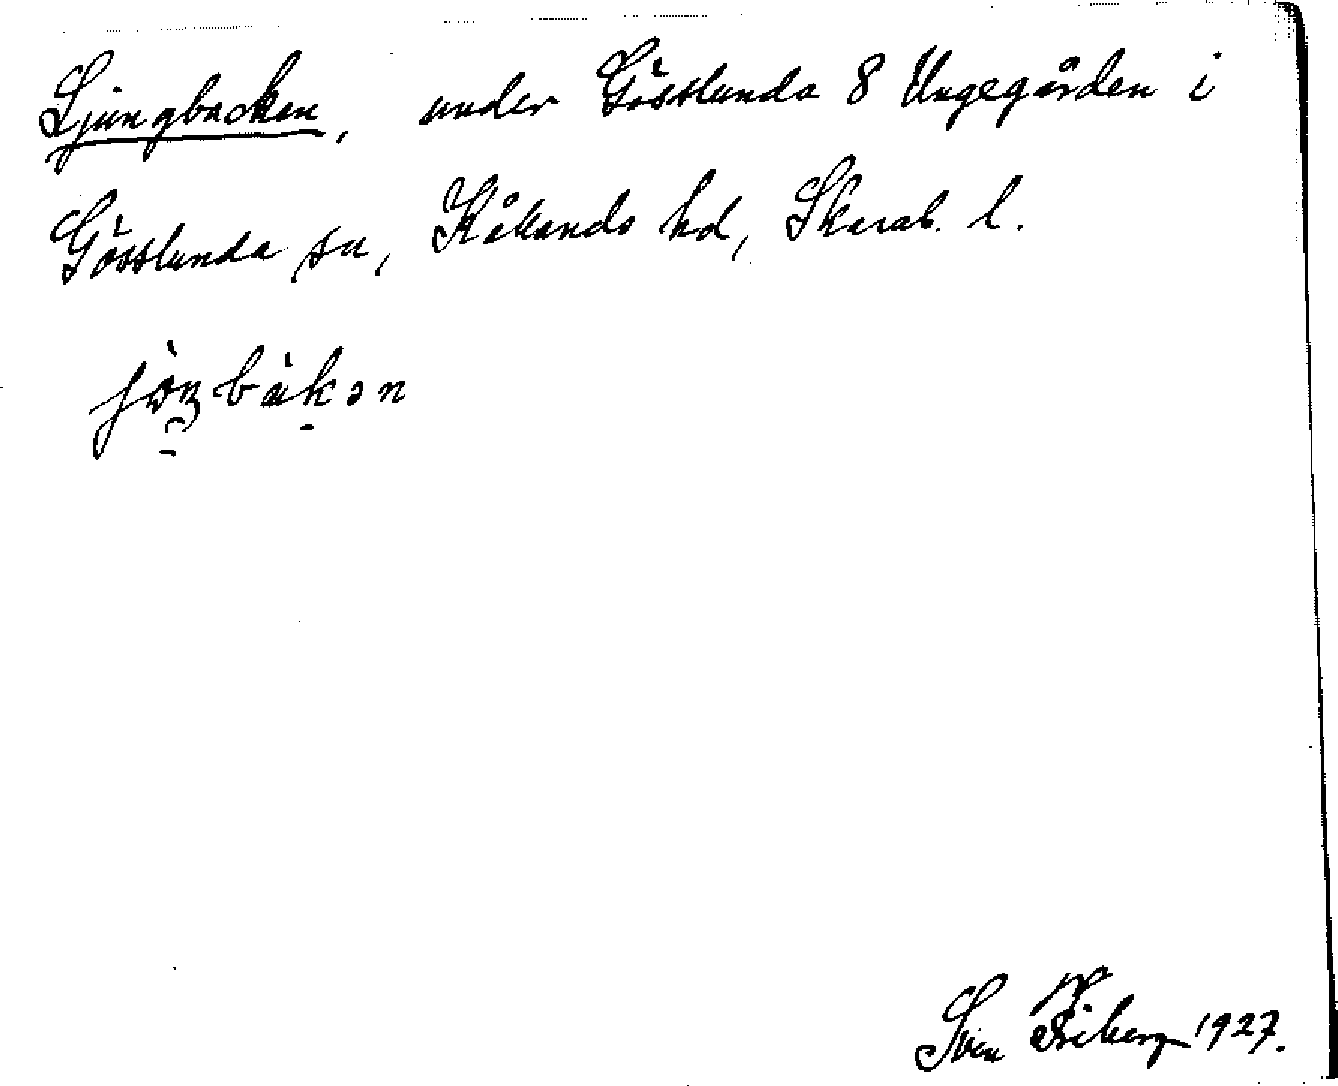 Ljungbacken, under Gösslunda 8 Ungegården i
Gösslunda sn, Kållands hd, Skarab. l.
jöŋbàkən
Sven Friberg 1927.